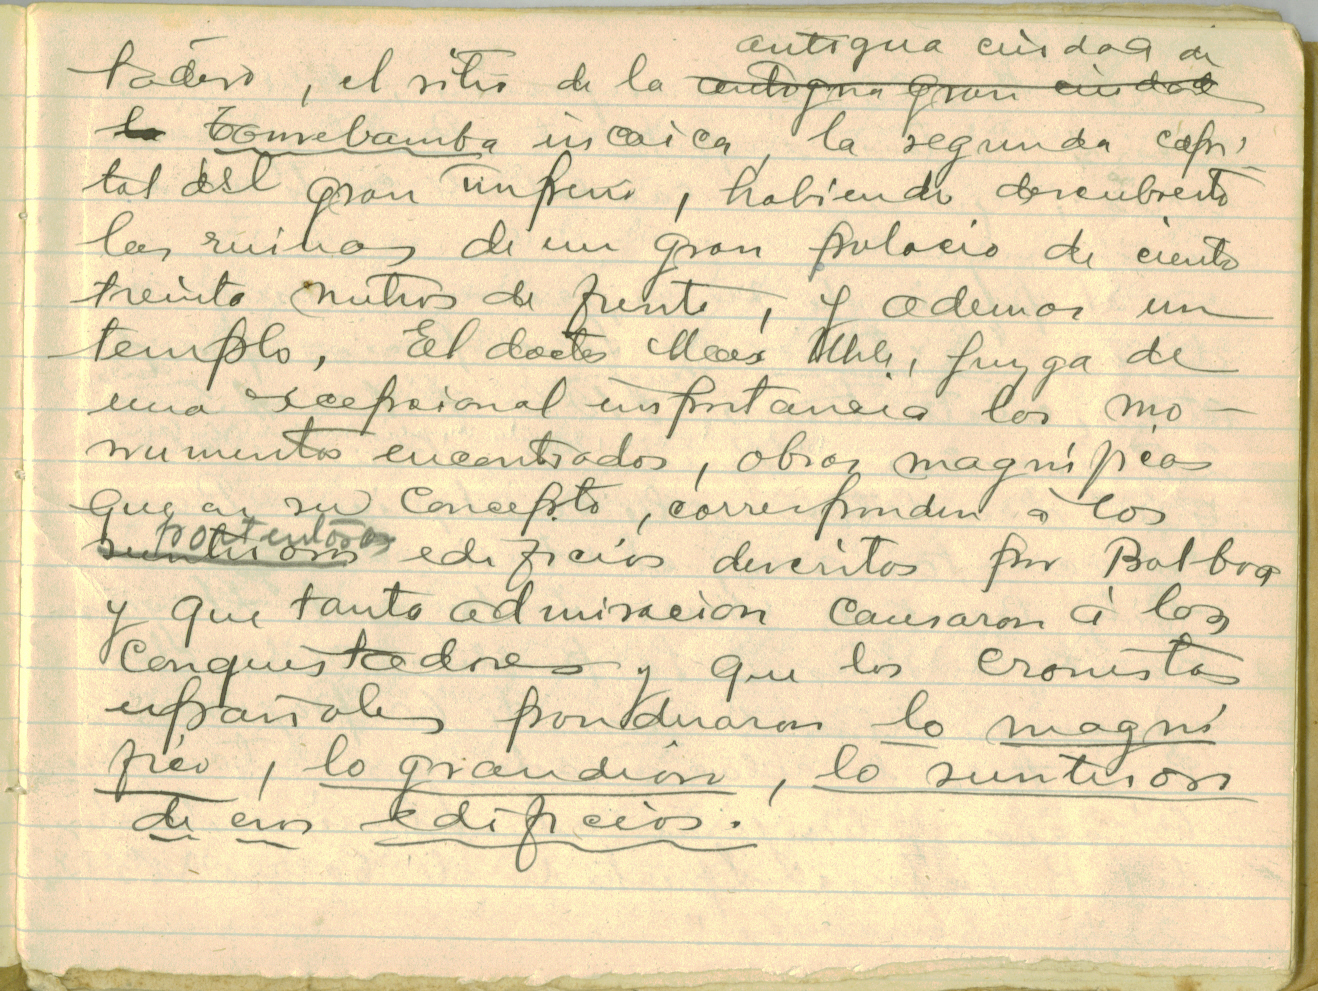 antigua ciudad de
tadero, el sitio de la antigua gran ciudad
la Tomebamba incaica, la segunda capi-
tal del gran imperio, habiendo descubierto
las ruinas de un gran palacio de ciento
treinta metros de frente, y ademas un
templo. El doctor Max Uhle, juzga de
una excepcional importancia los mo-
numentos encontrados, obras magníficas
que en su concepto, corresponden a los
portentosos
suntuosos edificios descritos por Balboa
y que tanta admiracion causaron á los
conquistadores y que los cronistas
españoles ponderaron lo magní
fico, lo grandioso, lo suntuoso
de esos edificios.